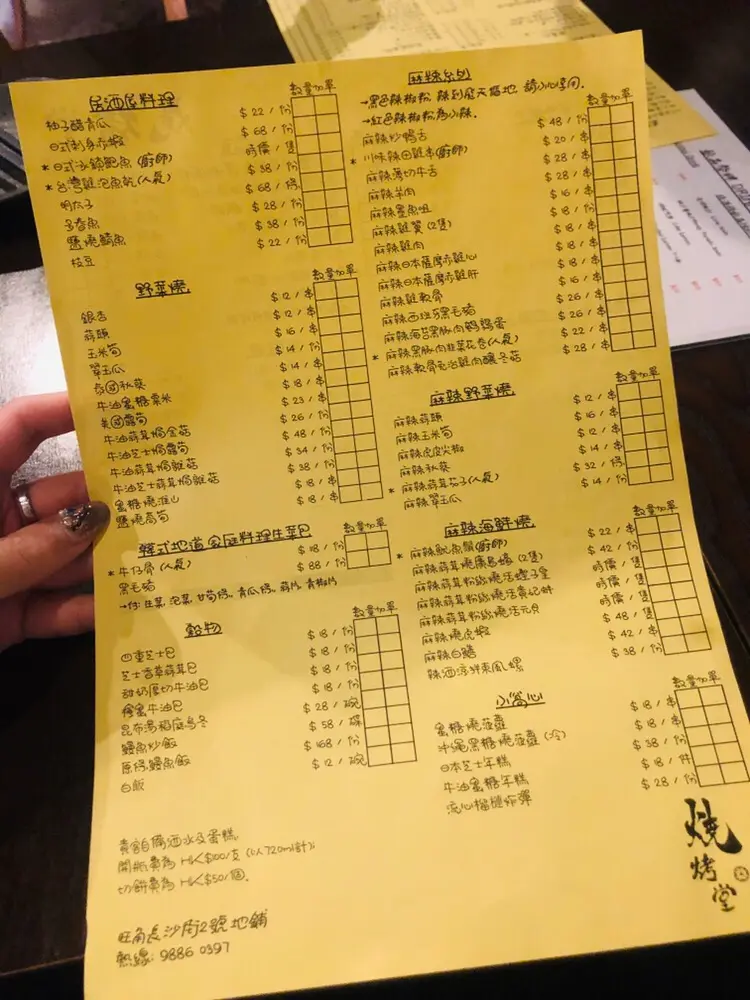 居酒屋料理 數量加單
柚子醋青瓜 $22/份
日式刺身赤蝦 $68/份
*日式冰鎮鮑魚(廚師) 時價/隻
*台灣雞泡魚乾(人氣) $38/份
明太子 $68/條
多春魚 $28/份
鹽燒鯖魚 $38/份
枝豆 $22/份
野菜燒 數量加單
銀杏 $12/串
蒜頭 $12/串
玉米筍 $16/串
翠玉瓜 $14/份
泰國秋葵 $14/串
牛油蜜糖粟米 $18/串
美國露筍 $23/串
牛油蒜茸焗金菇 $26/份
牛油芝士焗露筍 $48/份
牛油蒜茸焗雜菇 $34/份
牛油芝士蒜茸焗雜菇 $38/份
蜜糖燒淮山 $18/串
鹽燒高筍 $18/串
韓式地道家庭料理生菜包 數量加單
*牛仔骨(人氣)
黑毛豬 $88/份
→付:生菜,泡菜,甘筍條,青瓜條,蒜片,青椒片
穀物 數量加單
四重芝士包 $18/份
芝士香草蒜茸包 $18/份
甜奶厚切牛油包 $18/份
檸蜜牛油包 $18/份
昆布湯稻庭烏冬 $28/碗
鰻魚炒飯 $58/碟
原條鰻魚飯 $168/份
白飯 $12/碗
貴客自備酒水及蛋糕,
開瓶費為HK$100/支(以720ml計);
切餅費為HK$50/個.
旺角長沙街2號地鋪
熱線: 9886 0397
麻辣系列
→黑色辣椒粉 辣到庭天搶地 請小心享用.
→紅色辣椒粉為小辣. 數量加單
麻辣炒鴨舌 $48/份
*川味辣田雞串(廚師) $20/串
麻辣薄切牛舌 $28/串
麻辣羊肉 $28/串
麻辣墨魚咀 $16/串
麻辣雞翼(2隻) $18/份
麻辣雞肉 $18/串
麻辣日本薩摩赤雞心 $18/串
麻辣日本薩摩赤雞肝 $18/串
麻辣雞軟骨 $16/串
麻辣西班牙黑毛豬 $26/串
麻辣海苔黑豚肉鵪鶉蛋 $26/串
*麻辣黑豚肉韭菜花卷(人氣) $22/串
麻辣軟骨免治雞肉釀冬菇 $28/串
麻辣野菜燒 數量加單
麻辣蒜頭 $12/串
麻辣玉米筍 $16/串
麻辣虎皮尖椒 $12/串
麻辣秋葵 $14/串
*麻辣蒜茸茄子(人氣) $32/條
麻辣翠玉瓜 $14/份
麻辣海鮮燒 數量加單
*麻辣魷魚鬚(廚師) $22/串
麻辣蒜茸燒廣島蠔(2隻) $42/份
麻辣蒜茸粉絲燒活聖子皇 時價/隻
麻辣蒜茸粉絲燒活貴妃蚌 時價/份
麻辣蒜茸粉絲燒活元貝 時價/隻
麻辣燒虎蝦 $48/隻
麻辣白鱔 $42/串
辣酒涼拌東風螺 $38/份
小窩心 數量加單
蜜糖燒菠蘿 $18/串
沖繩黑糖燒菠蘿(冷) $18/串
日本芝士年糕 $38/份
牛油蜜糖年糕 $18/件
流心榴槤炸彈 $28/份
燒烤堂